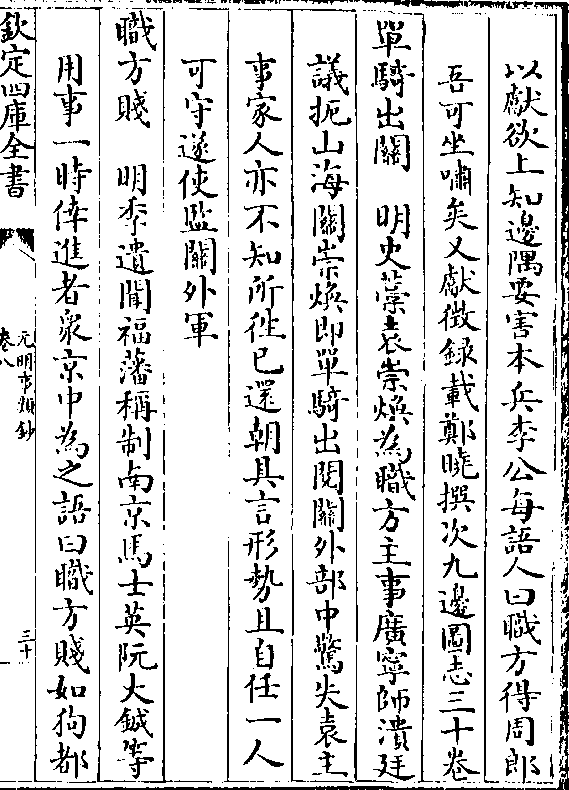 以獻欲上知邊隅要害本兵李公每語人曰職方得周郎
吾可坐嘯矣又獻徴録載鄭曉撰次九邊圖志三十卷
單騎出關　明史藁袁崇煥為職方主事廣寧師潰廷
議扼山海關崇煥即單騎出閲關外部中驚失袁主
事家人亦不知所徃已還朝具言形勢且自任一人
可守遂使監關外軍
職方賤　明季遺聞福藩稱制南京馬士英阮大鋮等
用事一時倖進者衆京中為之語曰職方賤如狗都
欽定四庫全書
元明事類鈔
卷八
三十